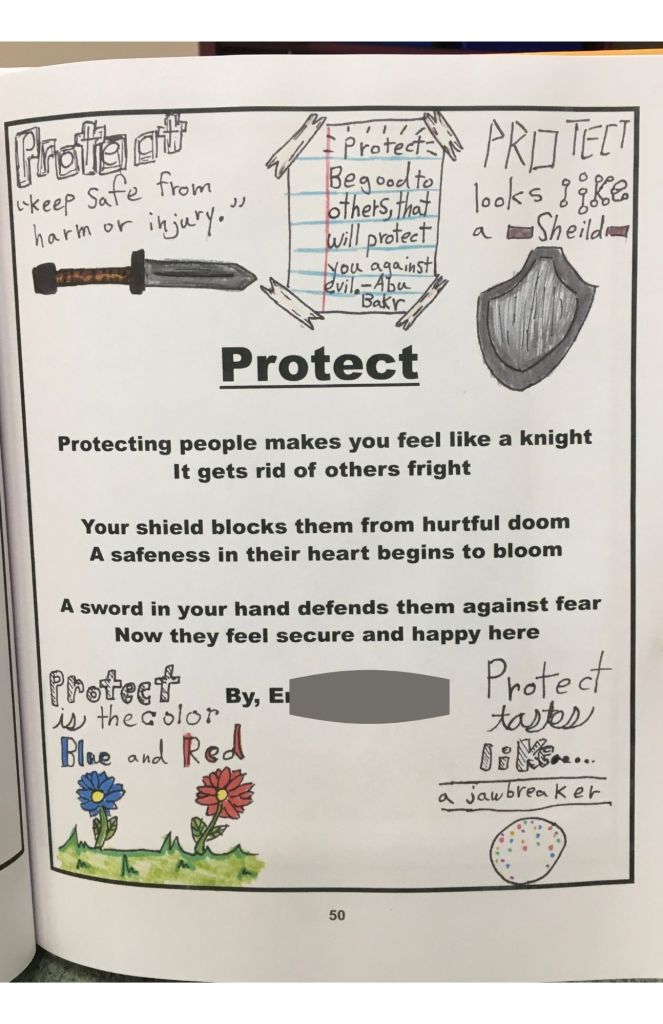 Protect
"keep Safe from
harm or injury."
Protect
Be good to
others, that
will protect
you against
evil.-Abu
Bakr
PROTECT
looks like
a Sheild
Protect
Protecting people makes you feel like a knight
It gets rid of others fright
Your shield blocks them from hurtful doom
A safeness in their heart begins to bloom
A sword in your hand defends them against fear
Now they feel secure and happy here
By,
Protect
is the color
Blue and Red
Protect
tastes
like....
a jawbreaker
50